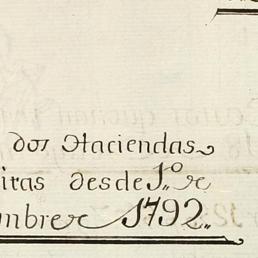 dos Haciendas
iras desde 1.º de
mbre de 1792.